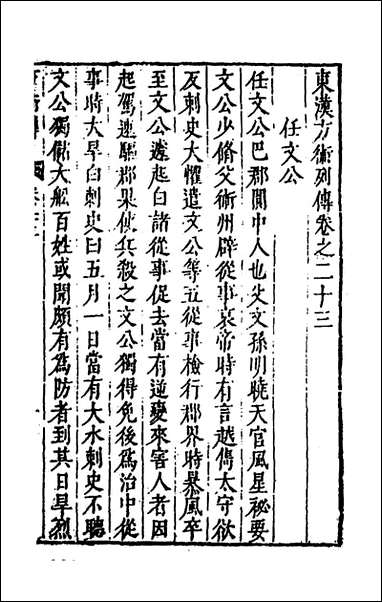 東漢方術列傳卷之二十三
任文公
任文公巴郡閬中人也父文孫明曉天官風星秘要
文公少脩父術州辟從事哀帝時有言越巂太守欲
反刺史大懼遣文公等五從事檢行郡界時暴風卒
至文公遽起白諸從事促去當有逆變來害人者因
起駕速驅郡果使兵殺之文公獨得免後爲治中從
事時大旱白刺史曰五月一日當有大水刺史不聽
文公獨儲大船百姓或聞頗有爲防者到其日旱烈